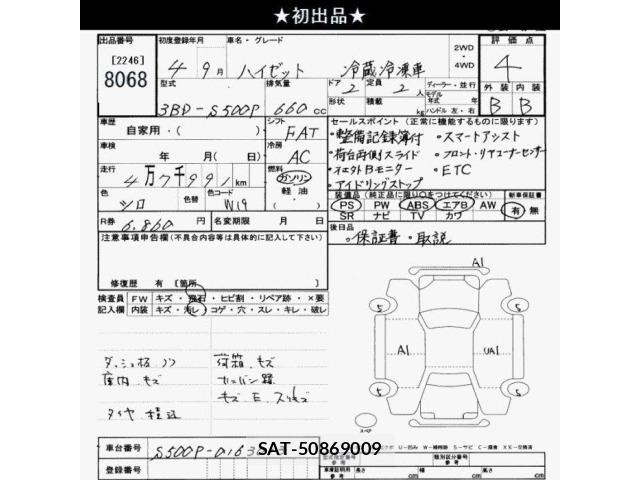 ★初出品★
出品番号 初度登録年月 車名・グレード 2WD・4WD 評価点
[2246] 8068 4年9月 ハイゼット 冷蔵冷凍車 4
型式 排気量 ドア 定員 ディーラー・並行 外装 内装
3BD-S500P 660cc 2 2人 モデル年式 年 B B
形状 積載 kg ハンドル 左・右
車歴 シフト セールスポイント(正常に機能するものに限ります)
自家用・( ) FAT ・整備記録簿付 ・スマートアシスト
車検 冷房 ・荷台両側スライド ・フロント・リヤコーナーセンサー
年 月(日) AC ・ETC
走行 燃料 ・アイドリングストップ
4万7千991km ガソリン・軽油
色 色替 色コード 装備品(純正品に限り○をつけてください) 新車保証書
シロ W19 PS PW ABS エアB AW 有・無
R券 6,860円 名変期限 月 日 SR ナビ TV カワ
注意事項申告欄(不具合内容等は具体的に記入して下さい) 後日品
・保証書・取説
修復歴 有[箇所 ]
検査員記入欄 FW キズ・飛石・ヒビ割・リペア跡・×要
内装 キズ・汚レ・コゲ・穴・スレ・キレ・破レ
A1
5 5
A1 UA1
5 5
ダッシュ板ノリ 荷箱キズ
庫内キズ
タイヤ積込
スペア
車台番号 S500P-0163
SAT-50869009
登録番号
車庫証明用参考 長さ cm 幅 cm 高さ cm